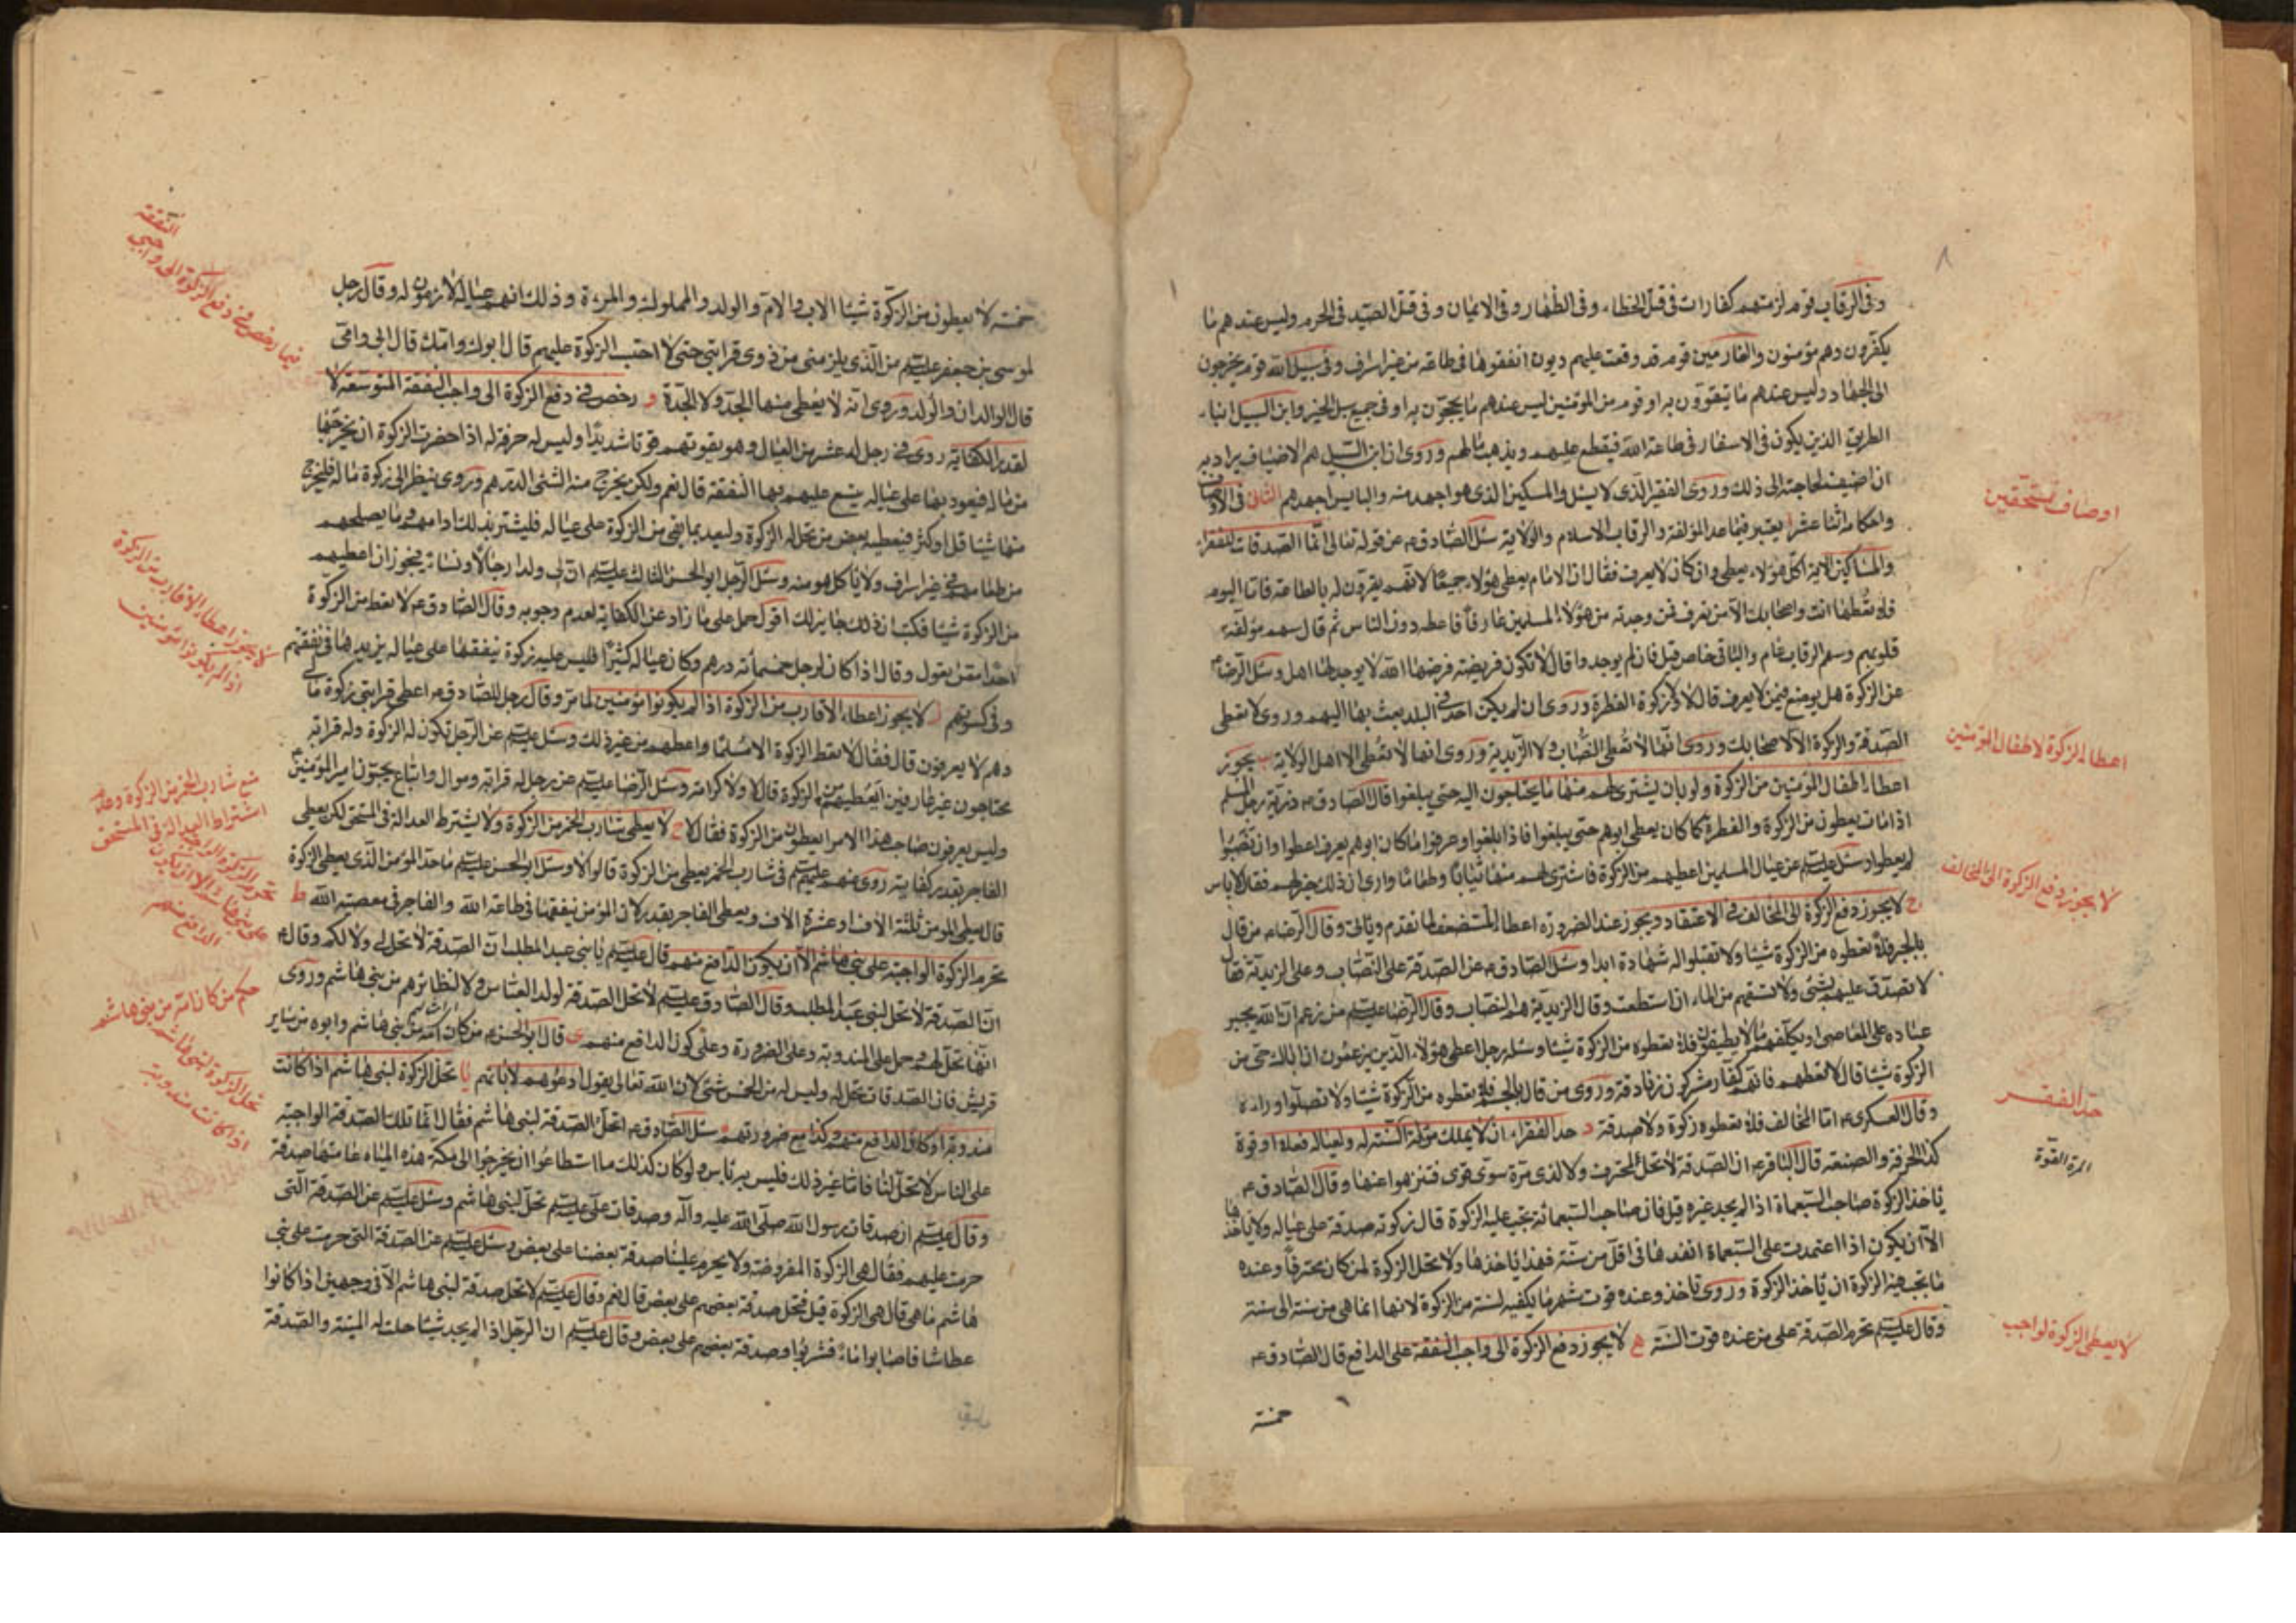 وفى الرقاب قوم لزمتهم كفارات فى قتل الخطاء وفى الظهار وفى الايمان وفى قتل الصيد فى الحرم وليس عندهم ما
يكفرون وهم مؤمنون والغارمين قوم قد وقعت عليهم ديون انفقوها فى طاعة من غير اسراف وفى سبيل الله قوم يخرجون
الى الجهاد وليس عندهم ما يتقوون به او قوم من المؤمنين ليس عندهم ما يحجون به او فى جميع سبل الخير وابن السبيل ابناء
الطريق الذين يكون فى الاسفار فى طاعة الله فيقطع عليهم ويذهب مالهم وروى ان ابن السبيل هم الاضياف يراد به
ان اضيف لحاجته الى ذلك وروى الفقير الذى لا يسئل والمسكين الذى هو اجهد منه والبايس اجهدهم الثانى فى الاوصاف
واحكامه اثنا عشر ا يعتبر فيما عدا المؤلفة والرقاب الاسلام والولاية سئل الصادق ع عن قوله تعالى انما الصدقات للفقراء
والمساكين الاية اكل هؤلاء يعطى وان كان لا يعرف فقال ان الامام يعطى هؤلاء جميعا لانهم يقرون له بالطاعة فاما اليوم
فلا تعطها انت واصحابك الا من تعرف فمن وجدته من هؤلاء المسلمين عارفا فاعطه دون الناس ثم قال سهم مؤلفة
قلوبهم وسهم الرقاب عام والباقى خاص قيل فان لم يوجدوا قال لا تكون فريضة فرضها الله لا يوجد لها اهل وسئل الرضا ع
عن الزكوة هل يوضع فيمن لا يعرف قال لا ولا زكوة الفطرة وروى ان لم يكن احد فى البلد يبعث بها اليهم وروى لا تعطى
الصدقة والزكوة الا لاصحابك وروى انها لا تعطى النصاب ولا الزيدية وروى انها لا تعطى الا اهل الولاية ب يجوز
اعطاء اطفال المؤمنين من الزكوة ولو بان يشترى لهم منها ما يحتاجون اليه حتى يبلغوا قال الصادق ع ذرية رجل المسلم
اذا مات يعطون من الزكوة والفطرة كما كان يعطى ابوهم حتى يبلغوا فاذا بلغوا وعرفوا ما كان ابوهم يعرف اعطوا وان نصبوا
لم يعطوا وسئل عليه السلم عن عيال المسلمين اعطيهم من الزكوة فاشترى لهم منها ثيابا وطعاما وارى ان ذلك خير لهم فقال لا باس
ج لا يجوز دفع الزكوة الى المخالف فى الاعتقاد ويجوز عند الضرورة اعطاء المستضعف لما تقدم وياتى وقال الرضا ع من قال
بالجبر فلا تعطوه من الزكوة شيئا ولا تقبلوا له شهادة ابدا وسئل الصادق ع عن الصدقة على النصاب وعلى الزيدية فقال
لا تصدق عليهم بشئ ولا تسقهم من الماء ان استطعت وقال الزيدية هم النصاب وقال الرضا عليه السلم من زعم ان الله يجبر
عباده على المعاصى او يكلفهم ما لا يطيقون فلا تعطوه من الزكوة شيئا وسئله رجل اعطى هؤلاء الذين يزعمون ان اباك حى من
الزكوة شيئا قال لا تعطهم فانهم كفار مشركون زنادقة وروى من قال بالجسم فلا تعطوه من الزكوة شيئا ولا تصلوا وراءه
وقال العسكرى ع اما المخالف فلا تعطوه زكوة ولا صدقة د حد الفقراء ان لا يملك مؤنة السنة له ولعياله فعلا او قوة
كذا الحرفة والصنعة قال الباقر ع ان الصدقة لا تحل لمحترف ولا لذى مرة سوى قوى فتنزهوا عنها وقال الصادق ع
ياخذ الزكوة صاحب السبعمائة اذا لم يجد غيره قيل فان صاحب السبعمائة تجب عليه الزكوة قال زكوته صدقة على عياله ولا ياخذها
الا ان يكون اذا اعتمدت على السبعمائة انفدها فى اقل من سنة فهذا ياخذها ولا تحل الزكوة لمن كان محترفا وعنده
ما تجب فيه الزكوة ان ياخذ الزكوة وروى تاخذ وعنده قوت شهر ما يكفيه لسنة من الزكوة لانها انما هى من سنة الى سنة
وقال عليه السلم تحرم الصدقة على من عنده قوت السنة ه لا يجوز دفع الزكوة الى واجب النفقة على الدافع قال الصادق ع
خمسة
اوصاف مستحقين
اعطاء الزكوة لاطفال المؤمنين
لا يجوز دفع الزكوة الى المخالف
حد الفقر
المرة القوة
لا يعطى الزكوة لواجب
خمسة لا يعطون من الزكوة شيئا الاب والام والولد والمملوك والمرءة وذلك انهم عياله لازمون له وقال رجل
لموسى بن جعفر عليه السلم من الذى يلزمنى من ذوى قرابتى حتى لا احتسب الزكوة عليهم قال ابوك وامك قال ابى وامى
قال الوالدان والولد وروى انه لا يعطى منها الجد ولا الجدة و رخص فى دفع الزكوة الى واجب النفقة للتوسعة لا
لقدر الكفاية روى فى رجل له عشر من العيال وهو يقوتهم قوتا شديدا وليس له حرفة له اذا حضرت الزكوة ان يخرجها
من ماله فيعود بها على عياله يتسع عليهم بها النفقة قال نعم ولكن يخرج منه الشئ الدرهم وروى ينظر الى زكوة ماله فليخرج
منها شيئا قل او كثر فيعطيه بعض من تحل له الزكوة وليعد بما بقى من الزكوة على عياله فليشتر بذلك ادامهم وما يصلحهم
من طعامهم فى غير اسراف ولا ياكل هو منه وسئل الرجل ابو الحسن الثالث عليه السلم ان لى ولدا رجالا ونساء يجوز ان اعطيهم
من الزكوة شيئا فكتب ان ذلك جايز لك اقول حمل على ما زاد عن الكفاية لعدم وجوبه وقال الصادق ع لا تعط من الزكوة
احدا ممن يعول وقال اذا كان لرجل خمسمائة درهم وكان عياله كثيرا فليس عليه زكوة ينفقها على عياله يزيدها فى نفقتهم
وفى كسوتهم ز لا يجوز اعطاء الاقارب من الزكوة اذا لم يكونوا مؤمنين لما مر وقال رجل للصادق ع اعطى قرابتى زكوة مالى
وهم لا يعرفون قال فقال لا تعط الزكوة الا مسلما واعطهم من غير ذلك وسئل عليه السلم عن الرجل تكون له الزكوة وله قرابة
محتاجون غير عارفين ايعطيهم من الزكوة قال لا ولا كرامة وسئل الرضا عليه السلم عن رجل له قرابة وموال واتباع يحبون امير المؤمنين ع
وليس يعرفون صاحب هذا الامر ايعطون من الزكوة فقال لا ح لا يعطى شارب الخمر من الزكوة ولا يشترط العدالة فى المستحق لكن يعطى
الفاجر بقدر كفايته روى عنهم عليهم السلم فى شارب الخمر يعطى من الزكوة قالوا لا وسئل ابو الحسن عليه السلم ما حد المؤمن الذى يعطى الزكوة
قال يعطى المؤمن ثلثة الاف او عشرة الاف ويعطى الفاجر بقدر لان المؤمن ينفقها فى طاعة الله والفاجر فى معصية الله ط
تحرم الزكوة الواجبة على بنى هاشم الا ان يكون الدافع منهم قال عليه السلم يا بنى عبد المطلب ان الصدقة لا تحل لى ولا لكم وقال ع
ان الصدقة لا تحل لبنى عبد المطلب وقال الصادق عليه السلم لا تحل الصدقة لولد العباس ولا لنظائرهم من بنى هاشم وروى
انها تحل لهم وحمل على المندوبة وعلى الضرورة وعلى كون الدافع منهم ى قال ابو الحسن ع من كانت امه من بنى هاشم وابوه من ساير
قريش فان الصدقات تحل له وليس له من الخمس شئ لان الله تعالى يقول ادعوهم لابائهم يا تحل الزكوة لبنى هاشم اذا كانت
مندوبة او كان الدافع منهم وكذا مع ضرورتهم سئل الصادق ع اتحل الصدقة لبنى هاشم فقال انما تلك الصدقة الواجبة
على الناس لا تحل لنا فاما غير ذلك فليس به باس ولو كان كذلك ما استطاعوا ان يخرجوا الى مكة هذه المياه عامتها صدقة
وقال عليه السلم ان صدقات رسول الله صلى الله عليه وآله وصدقات على عليه السلم تحل لبنى هاشم وسئل عليه السلم عن الصدقة التى
حرمت عليهم فقال هى الزكوة المفروضة ولا يحرم علينا صدقة بعضنا على بعض وسئل عليه السلم عن الصدقة التى حرمت على بنى
هاشم ما هى قال هى الزكوة قيل فتحل صدقة بعضهم على بعض قال نعم وقال عليه السلم لا تحل صدقة لبنى هاشم الا فى وجهين اذا كانوا
عطاشا فاصابوا ماء فشربوا وصدقة بعضهم على بعض وقال عليه السلم ان الرجل اذا لم يجد شيئا حلت له الميتة والصدقة
فيما رخص فى دفع الزكوة الى واجبى
النفقة
لا يجوز اعطاء الاقارب من الزكوة
اذا لم يكونوا مؤمنين
منع شارب الخمر من الزكوة وعدم
اشتراط العدالة فى المستحق
تحرم الزكوة الواجبة
على بنى هاشم الا ان يكون
الدافع منهم
حكم من كانت امه من بنى هاشم
تحل الزكوة لبنى هاشم
اذا كانت مندوبة